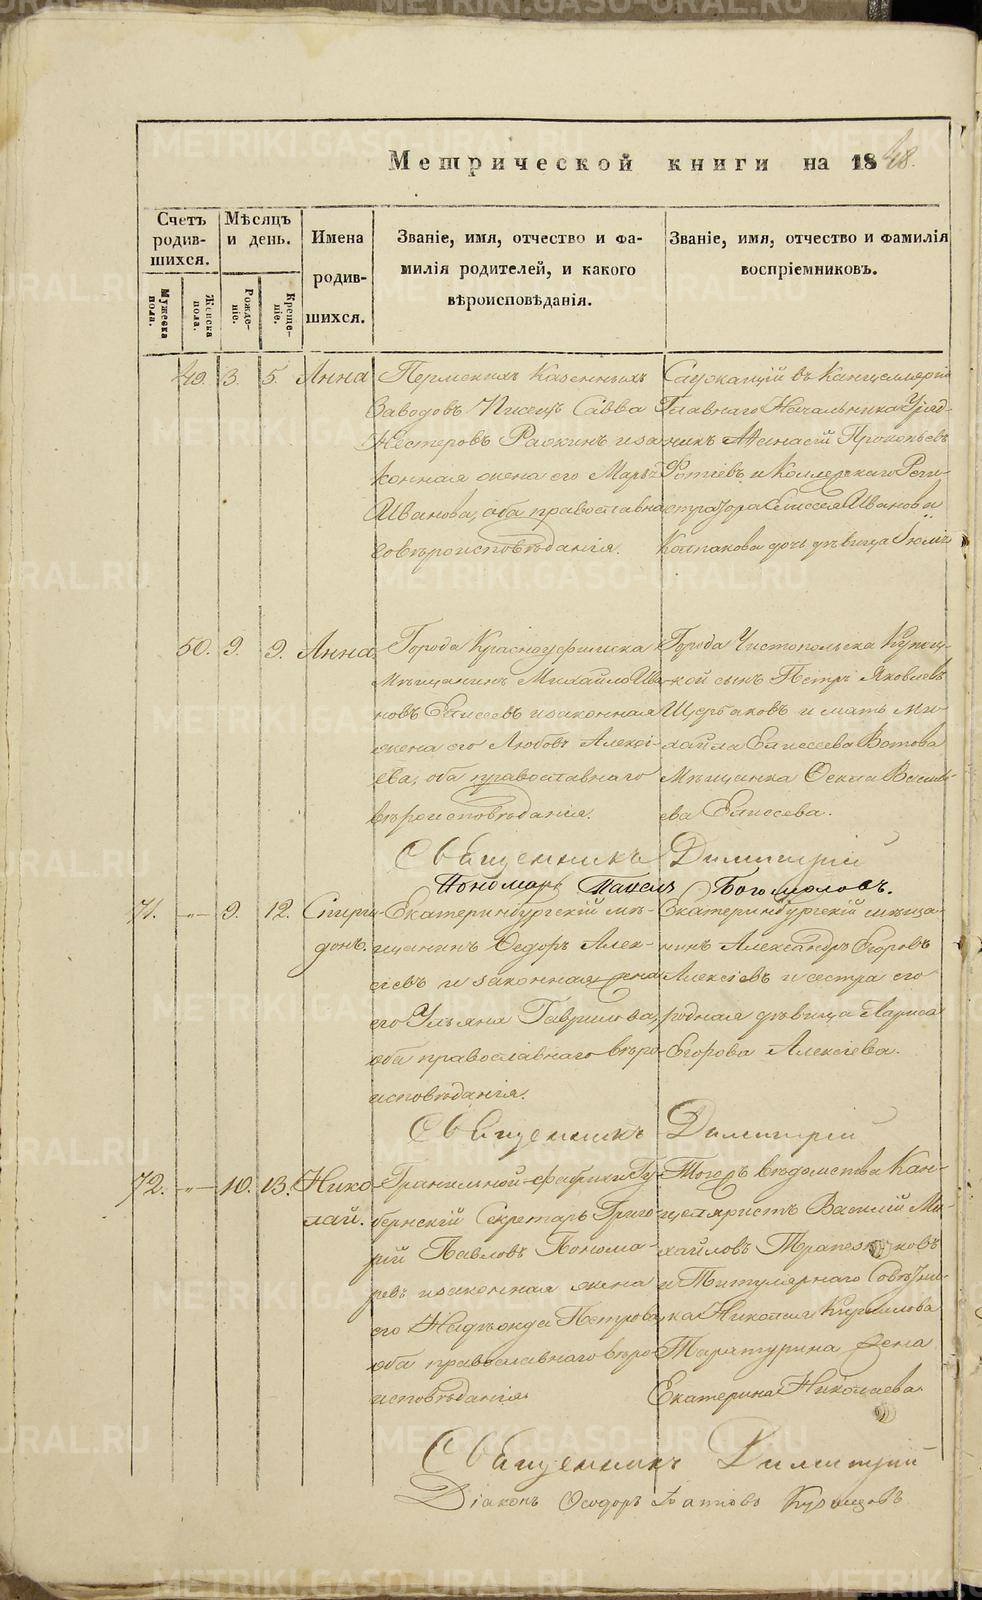 Метрической книги на 1848.
Счетъ родив-шихся.
Мѣсяцъ и день.
Имена родив-шихся.
Званіе, имя, отчество и фа-
милія родителей, и какого
вѣроисповѣданія.
Званіе, имя, отчество и фамилія
воспріемниковъ.
Мужеска пола.
Женска пола.
Рожде-ніе.
Креще-ніе.
49. 3. 5. Анна
Пермскихъ Казенныхъ
Заводовъ Писецъ Савва
Нестеровъ и за-
конная жена его Марѳа
Иванова, оба православна-
го вѣроисповѣданія.
Служащій въ Канцелляріи
Главнаго Начальника Уряд-
никъ Аѳанасій Прокопьевъ
Фотіевъ и Коллежскаго Реги-
стратора Елисея Иванови
Колпакова дочь дѣвица Юлія
50. 9. 9. Анна
Города Красноуфимска
Мѣщанинъ Михайло Ива-
новъ Елисеевъ и законная
жена его Любовь Алексі-
ева, оба православнаго
вѣроисповѣданія.
Города Чистополя Купец-
кой сынъ Петръ Яковлевъ
Щербаковъ и мать Ми-
хайла Елисеева Вдова
Мѣщанка Василь-
ева Елисеева.
Священникъ Димитрій
Пономарь Павелъ Богомоловъ.
71. -"- 9. 12. Спири-
донъ.
Екатеринбургскій мѣ-
щанинъ Ѳедоръ Алек-
сіевъ и законная жена
его Ульяна Гаврилова,
оба православнаго вѣро-
исповѣданія.
Екатеринбургскій мѣща-
нинъ Александръ Егоровъ
Алексіевъ и сестра его
родная дѣвица Лариса
Егорова Алексіева.
Священникъ Димитрій
72. -"- 10. 13. Нико-
лай.
Гранильной фабрики Гу-
бернскій Секретарь Григо-
рій Павловъ Понома-
ревъ и законная жена
его Надѣжда Петрова,
оба православнаго вѣро-
исповѣданія.
Тогожъ вѣдомства Кан-
целяристъ Василій Ми-
хайловъ Трапезниковъ
и Титулярнаго Совѣтни-
ка Николая Кириллова
жена
Екатерина Николаева.
Священникъ Димитрій
Діаконъ Ѳеодоръ
METRIKI.GASO-URAL.RU